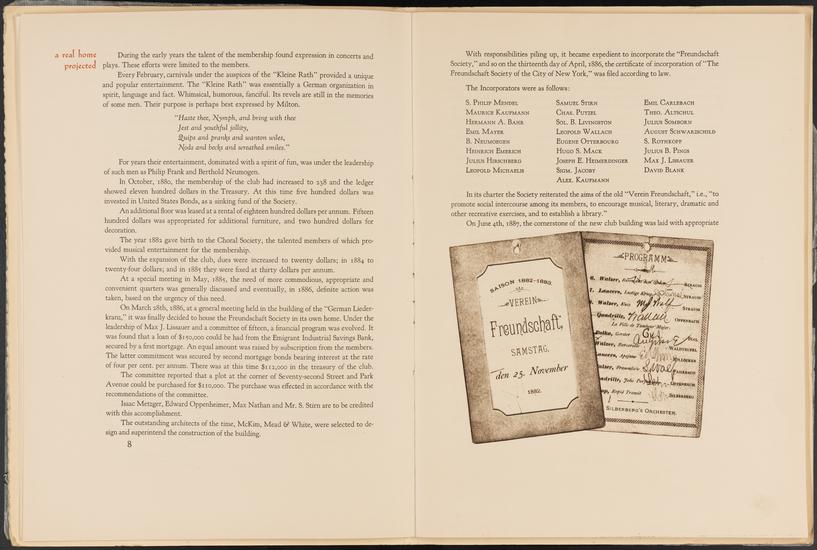 a real home
projected
During the early years the talent of the membership found expression in concerts and
plays. These efforts were limited to the members.
Every February, carnivals under the auspices of the "Kleine Rath" provided a unique
and popular entertainment. The "Kleine Rath" was essentially a German organization in
spirit, language and fact. Whimsical, humorous, fanciful. Its revels are still in the memories
of some men. Their purpose is perhaps best expressed by Milton.
"Haste thee, Nymph, and bring with thee
Jest and youthful jollity,
Quips and pranks and wanton wiles,
Nods and becks and wreathed smiles."
For years their entertainment, dominated with a spirit of fun, was under the leadership
of such men as Philip Frank and Berthold Neumogen.
In October, 1880, the membership of the club had increased to 238 and the ledger
showed eleven hundred dollars in the Treasury. At this time five hundred dollars was
invested in United States Bonds, as a sinking fund of the Society.
An additional floor was leased at a rental of eighteen hundred dollars per annum. Fifteen
hundred dollars was appropriated for additional furniture, and two hundred dollars for
decoration.
The year 1882 gave birth to the Choral Society, the talented members of which pro-
vided musical entertainment for the membership.
With the expansion of the club, dues were increased to twenty dollars; in 1884 to
twenty-four dollars; and in 1885 they were fixed at thirty dollars per annum.
At a special meeting in May, 1885, the need of more commodious, appropriate and
convenient quarters was generally discussed and eventually, in 1886, definite action was
taken, based on the urgency of this need.
On March 28th, 1886, at a general meeting held in the building of the "German Lieder-
kranz," it was finally decided to house the Freundschaft Society in its own home. Under the
leadership of Max J. Lissauer and a committee of fifteen, a financial program was evolved. It
was found that a loan of $150,000 could be had from the Emigrant Industrial Savings Bank,
secured by a first mortgage. An equal amount was raised by subscription from the members.
The latter commitment was secured by second mortgage bonds bearing interest at the rate
of four per cent. per annum. There was at this time $112,000 in the treasury of the club.
The committee reported that a plot at the corner of Seventy-second Street and Park
Avenue could be purchased for $110,000. The purchase was effected in accordance with the
recommendations of the committee.
Isaac Metzger, Edward Oppenheimer, Max Nathan and Mr. S. Stirn are to be credited
with this accomplishment.
The outstanding architects of the time, McKim, Mead & White, were selected to de-
sign and superintend the construction of the building.
8
With responsibilities piling up, it became expedient to incorporate the "Freundschaft
Society," and so on the thirteenth day of April, 1886, the certificate of incorporation of "The
Freundschaft Society of the City of New York," was filed according to law.
The Incorporators were as follows:
S. Philip Mendel
Maurice Kaufmann
Hermann A. Bahr
Emil Mayer
B. Neumoegen
Heinrich Emerich
Julius Hirschberg
Leopold Michaelis
Samuel Stirn
Chas. Putzel
Sol. B. Livingston
Leopold Wallach
Eugene Otterbourg
Hugo S. Mack
Joseph E. Heimerdinger
Sigm. Jacoby
Alex. Kaufmann
Emil Carlebach
Theo. Altschul
Julius Somborn
August Schwarzschild
S. Rothkopf
Julius B. Pings
Max J. Lissauer
David Blank
In its charter the Society reiterated the aims of the old "Verein Freundschaft," i.e., "to
promote social intercourse among its members, to encourage musical, literary, dramatic and
other recreative exercises, and to establish a library."
On June 4th, 1887, the cornerstone of the new club building was laid with appropriate
SAISON 1882-1883.
VEREIN
Freundschaft,
SAMSTAG,
den 25. November
1882.
PROGRAMM
Walzer,
STRAUSS
Lancers, Lustige
STRAUSS
Walzer,
STRAUSS
Quadrille,
OFFENBACH
La Fille du Tambour Major.
Polka,
Walzer,
WALDTEUFEL
Lancers,
Walzer,
Quadrille,
OFFENBACH
Rapid Transit
SILBERBERG
SILBERBERG'S ORCHESTER.